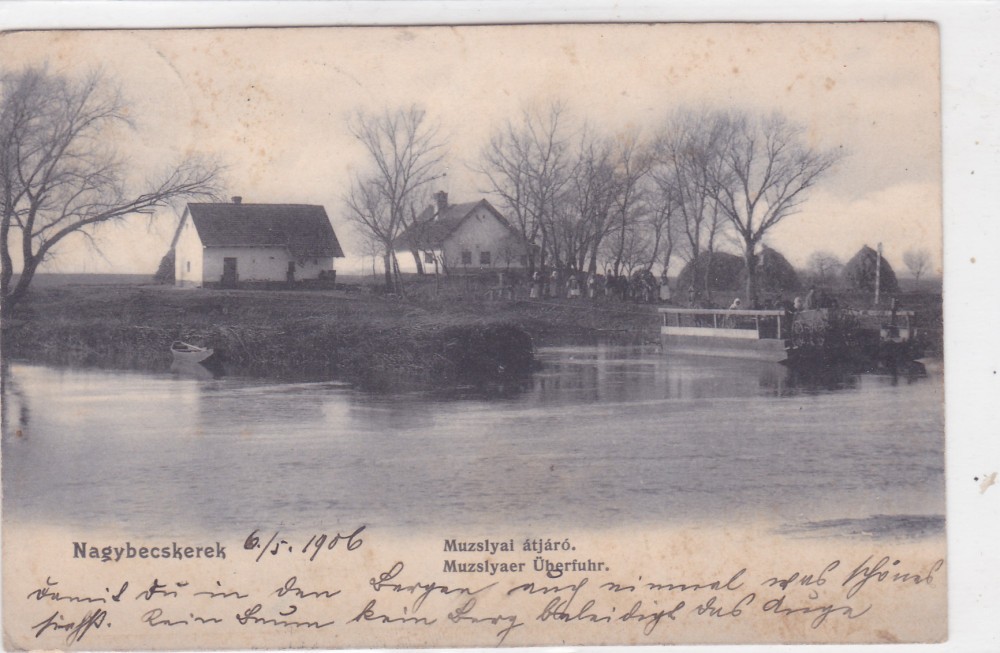 Nagybecskerek 6./5. 1906
Muzslyai átjáró.
Muzslyaer Überfuhr.
Damit du in den Bergen auch einmal was schönes
siehst. Kein Baum kein Berg beleidigt das Auge